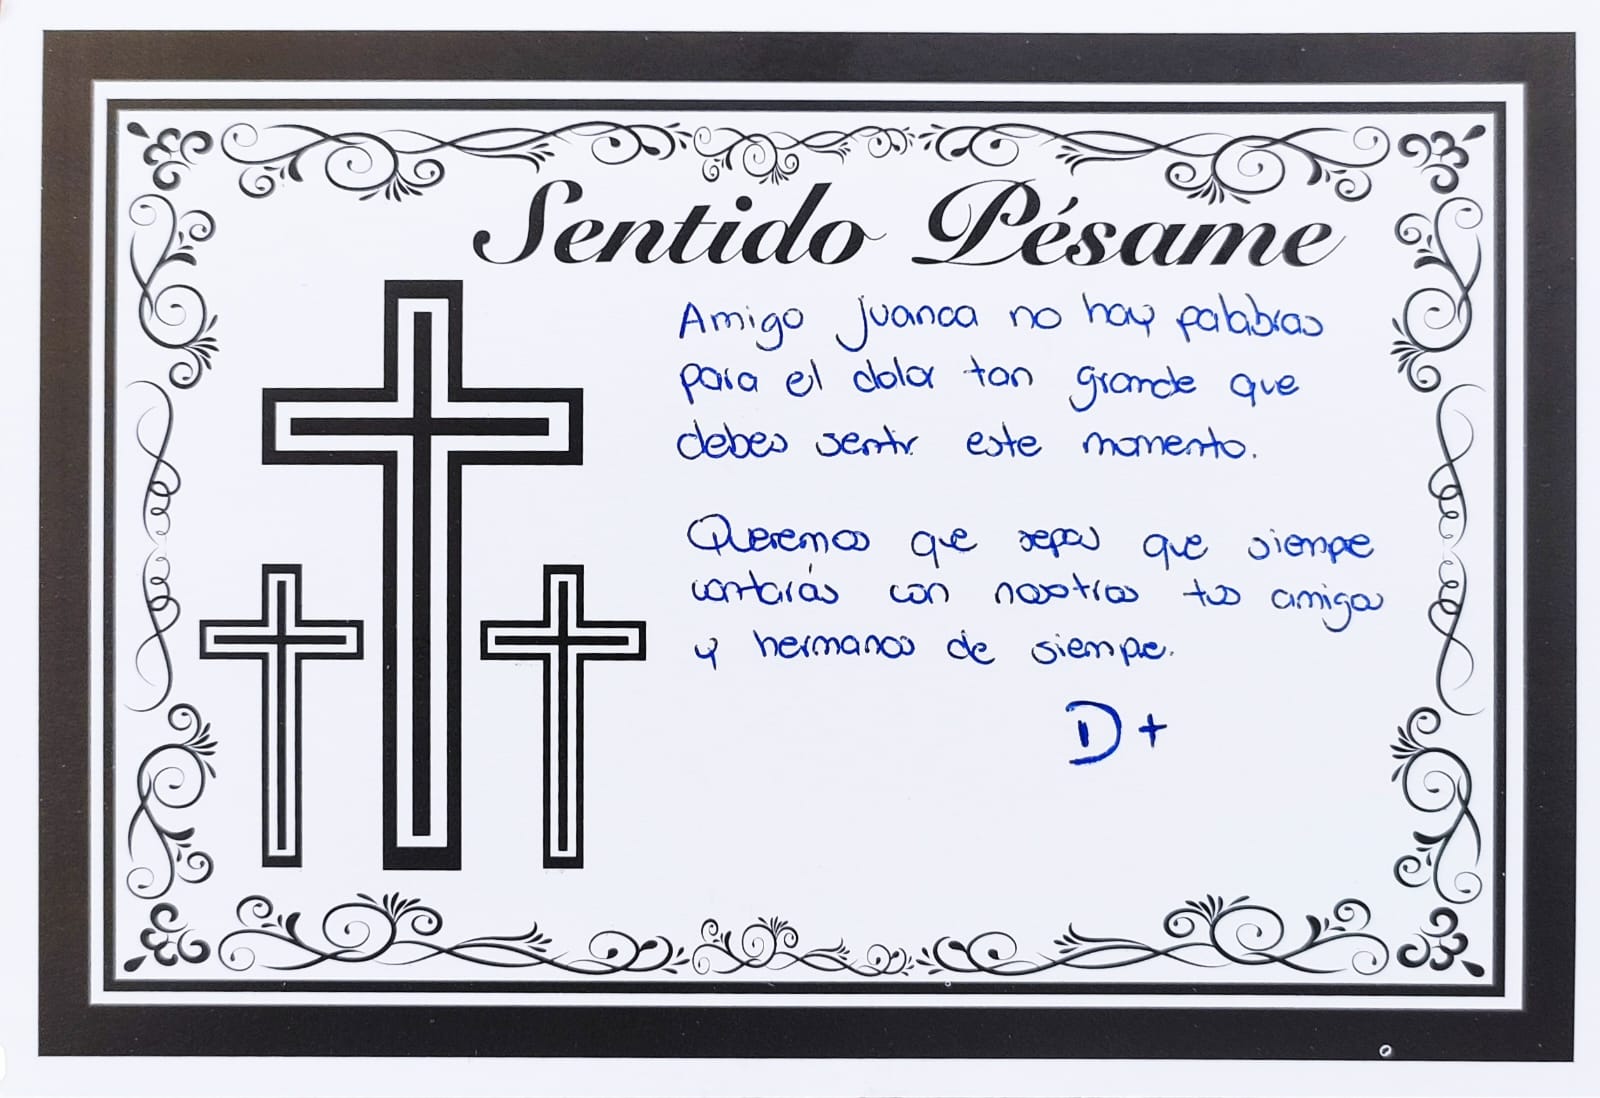 Sentido Pésame
Amigo Juanca no hay palabras
para el dolor tan grande que
debes sentir este momento.
Queremos que sepas que siempre
contarás con nosotros tus amigos
y hermanos de siempre.
D+